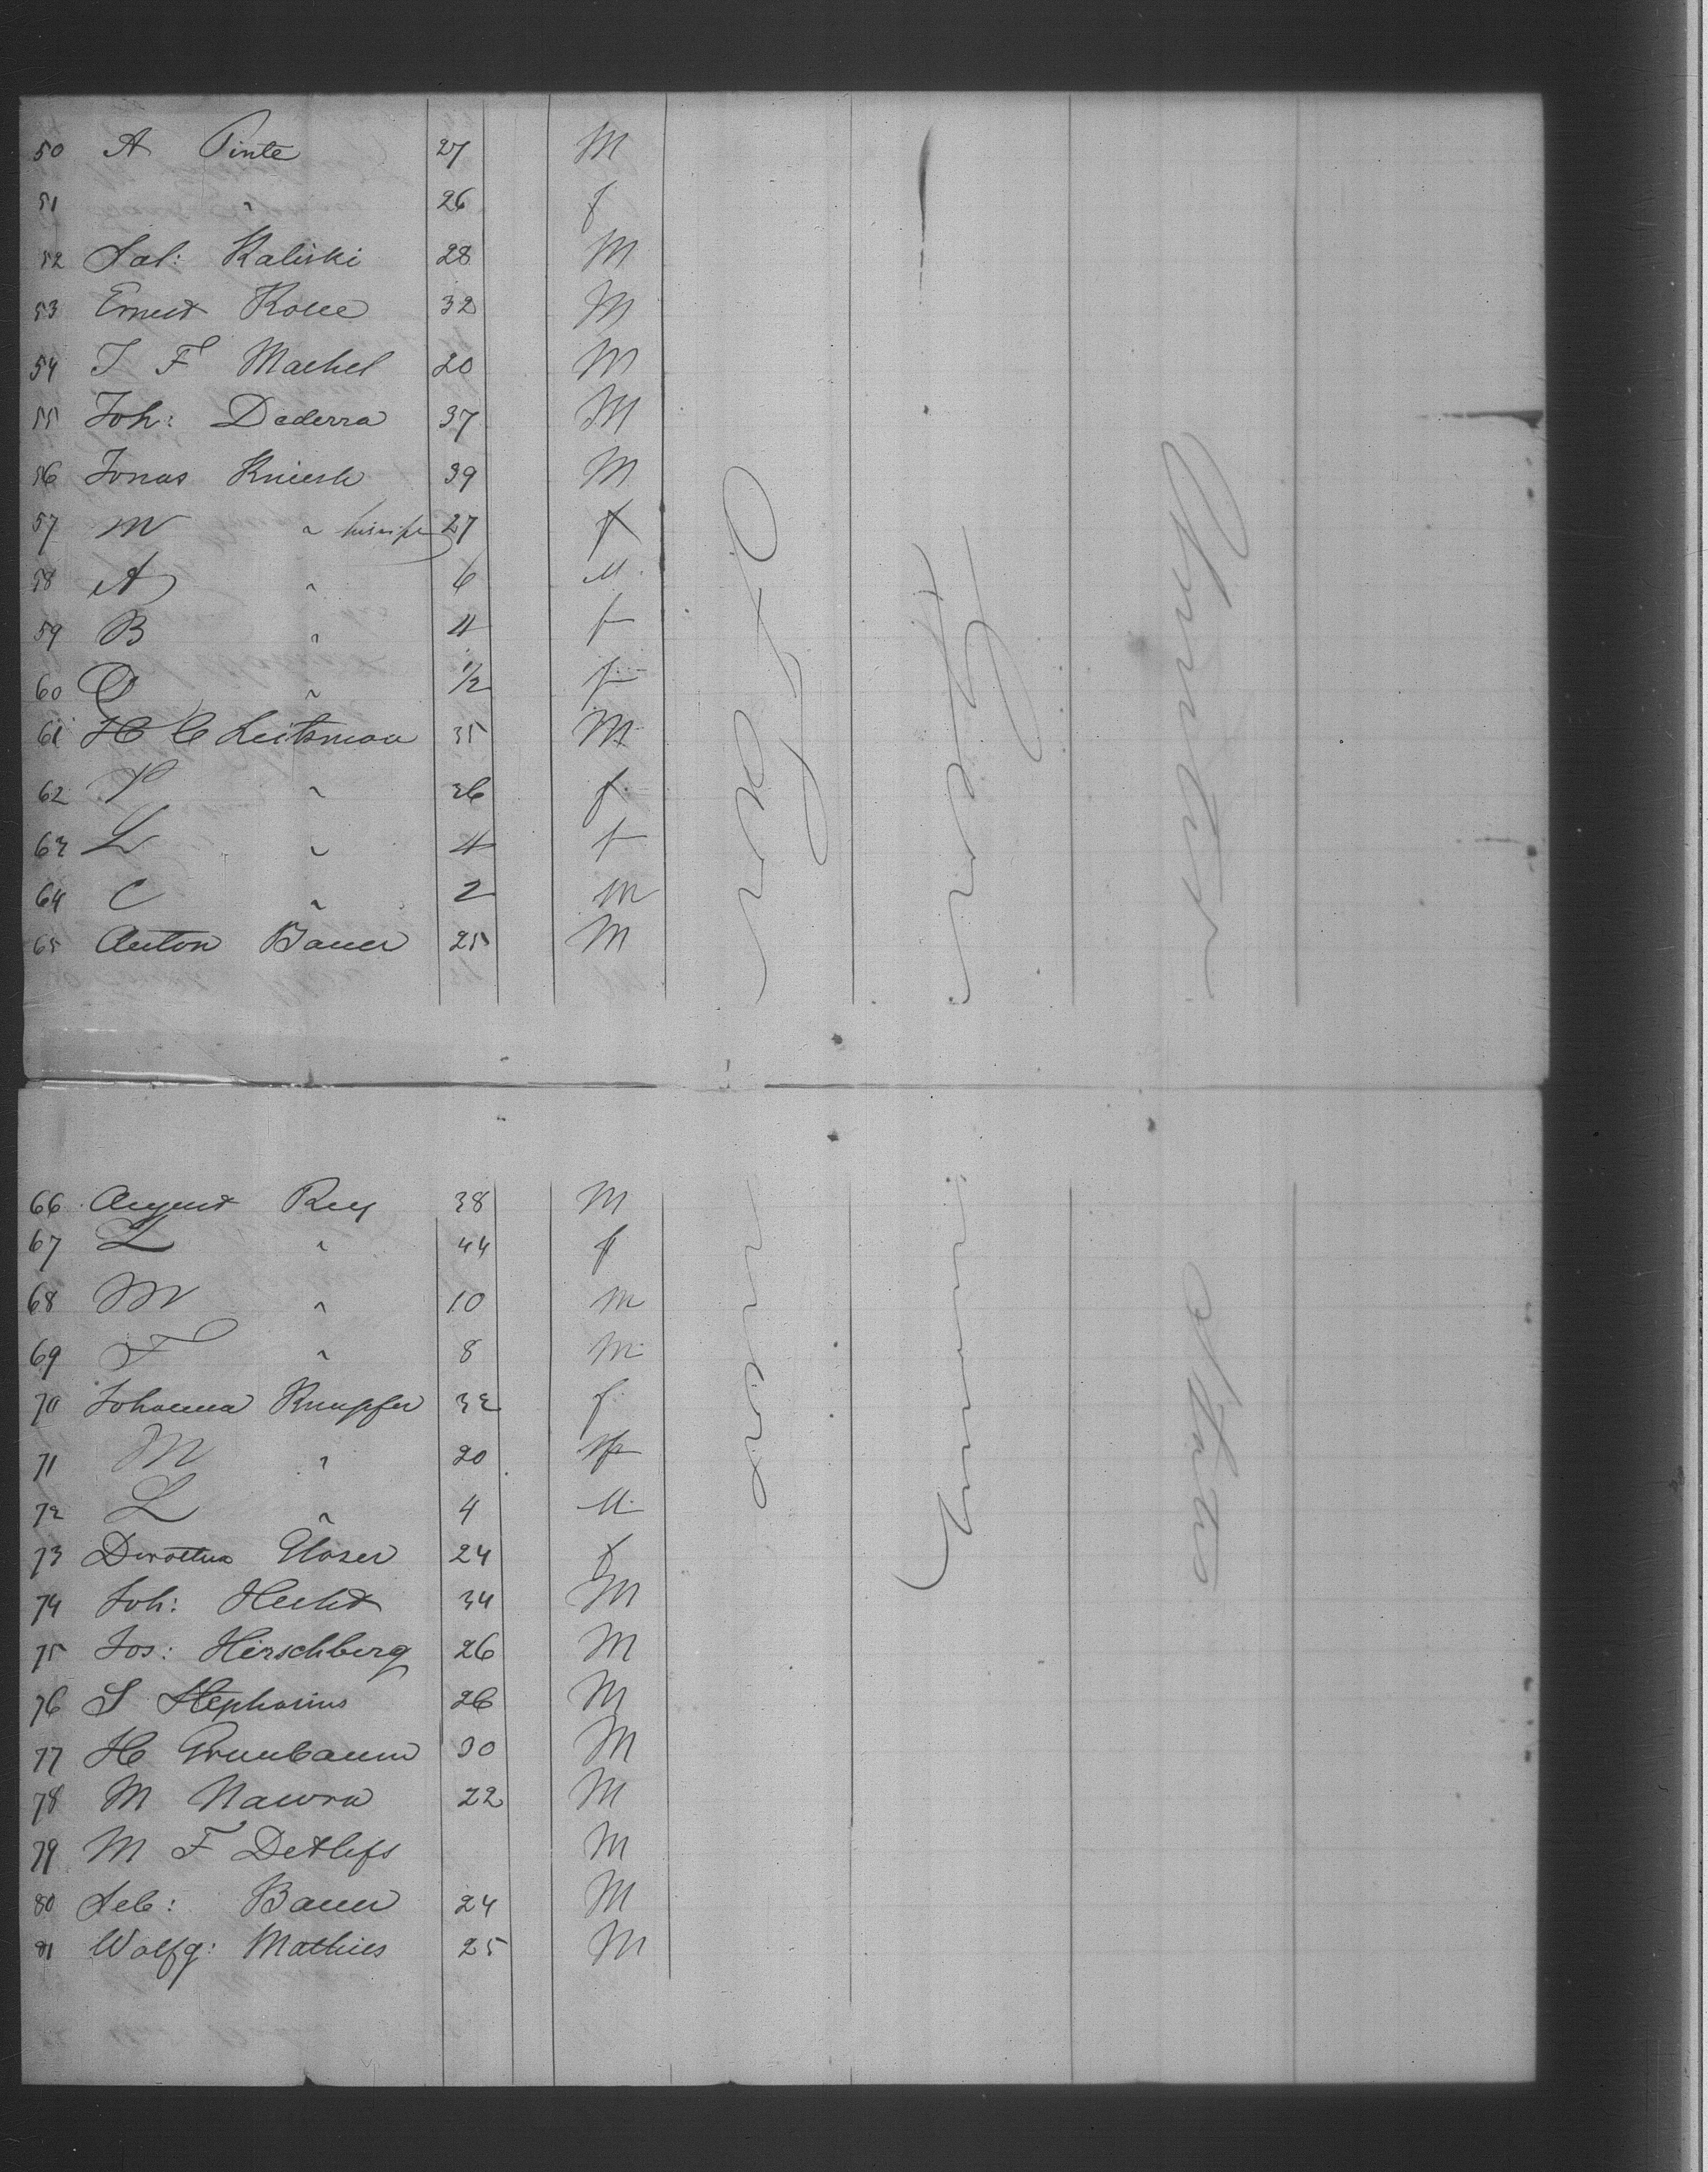 50 A Pinte 27 M
51 " 26 f
52 Sal: Kaliski 28 M
53 Ernest Rolle 32 M
54 J F Machel 20 M
55 Joh: Dederra 37 M
56 Jonas Kniesh 39 M
57 M " 27 f
58 A " 6 M
59 B " 4 f
60 O " 1/2 f
61 H C Leitsman 35 M
62 P " 36 f
63 L " 4 f
64 C " 2 M
65 Anton Bauer 25 M
66 August Rey 38 M
67 L " 44 f
68 M " 10 M
69 F " 8 M
70 Johanna Knupfer 32 f
71 M " 20
72 L " 4 M
73 Dorothea Glaser 24 f
74 Joh: Hecht 34 M
75 Jos: Hirschberg 26 M
76 S Stephanius 26 M
77 H Grunbaum 30 M
78 M Nawra 22 M
79 M F Detlefs M
80 Seb: Bauer 24 M
81 Wolfg: Mathies 25 M
Germany
United States